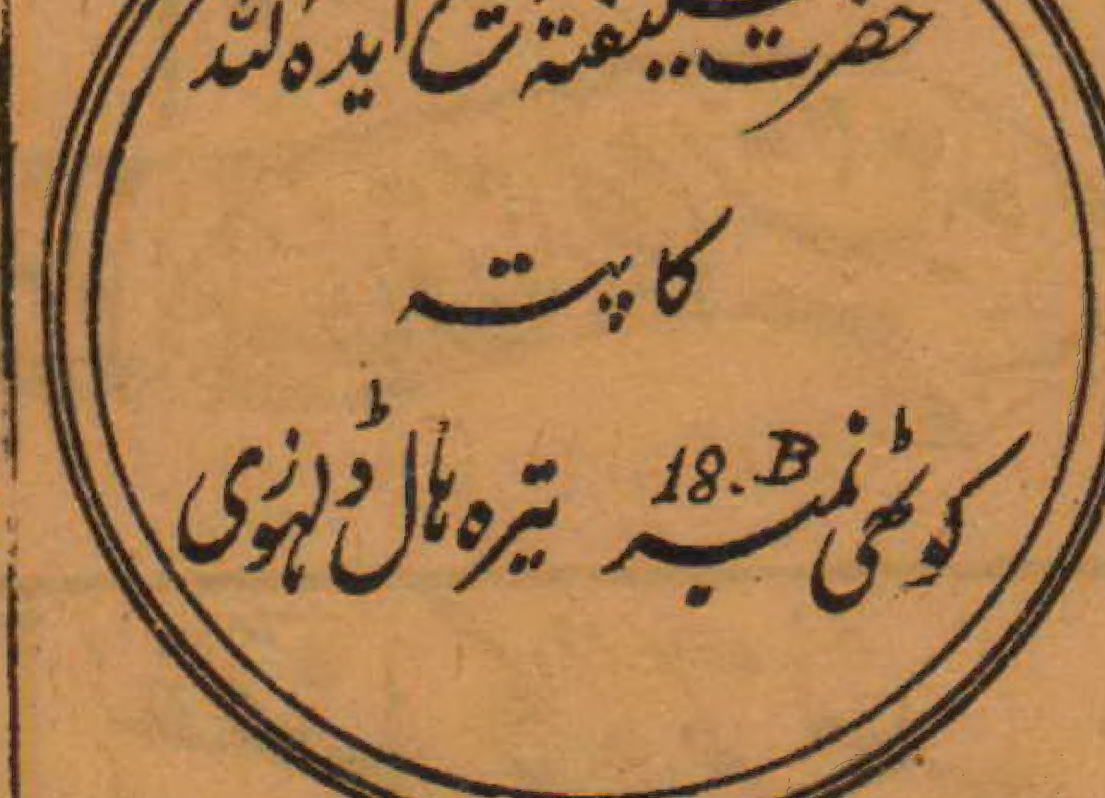 حضرت خلیفۃ المسیح ایدہ اللہ
کا پتہ
کوٹھی نمبر 18.B تیرہ ہال ڈلہوزی